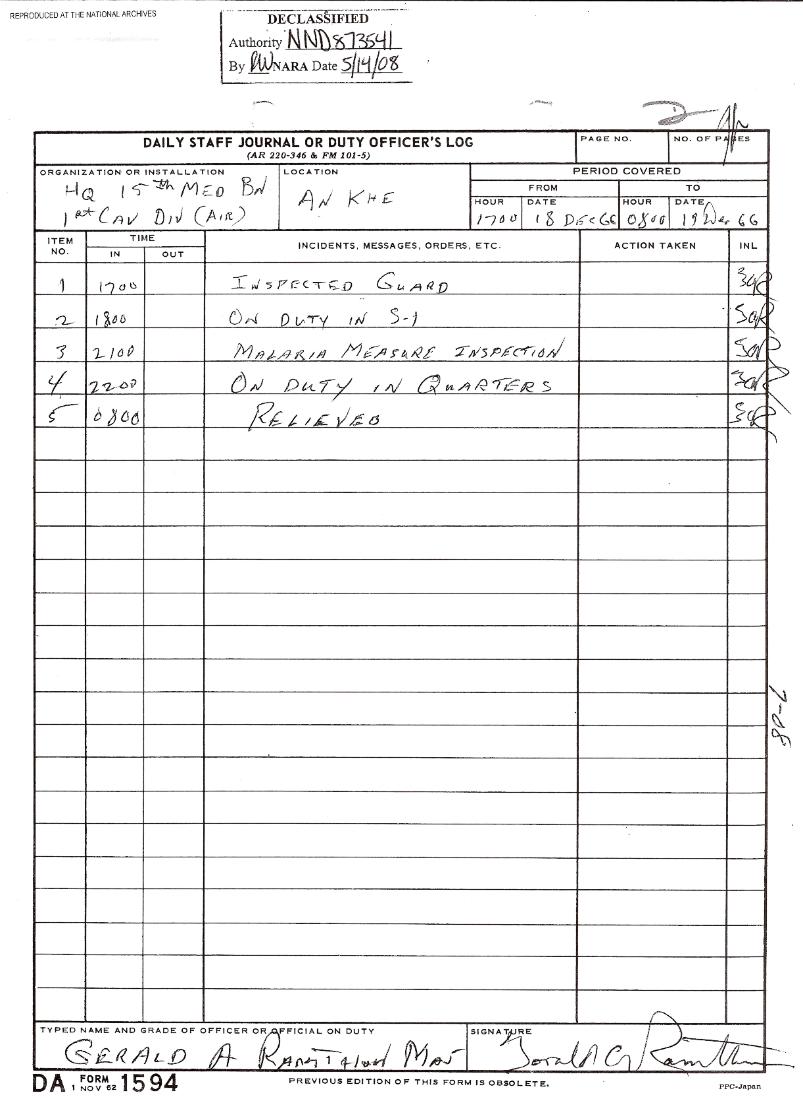 REPRODUCED AT THE NATIONAL ARCHIVES
DECLASSIFIED
Authority NND873541
By NARA Date 5/14/08
DAILY STAFF JOURNAL OR DUTY OFFICER'S LOG
(AR 220-346 & FM 101-5)
PAGE NO.
NO. OF PAGES
ORGANIZATION OR INSTALLATION
HQ 15th MED BN
1st CAV DIV (AIR)
LOCATION
AN KHE
PERIOD COVERED
FROM
TO
HOUR
DATE
HOUR
DATE
1700
18 DEC 66
0800
19 Dec 66
ITEM NO.
TIME
IN
OUT
INCIDENTS, MESSAGES, ORDERS, ETC.
ACTION TAKEN
INL
1 1700 INSPECTED GUARD
2 1800 ON DUTY IN S-1
3 2100 MALARIA MEASURE INSPECTION
4 2200 ON DUTY IN QUARTERS
5 0800 RELIEVED
7-08
TYPED NAME AND GRADE OF OFFICER OR OFFICIAL ON DUTY
GERALD A MAJ
SIGNATURE
DA FORM 1 NOV 62 1594
PREVIOUS EDITION OF THIS FORM IS OBSOLETE.
PPC-Japan